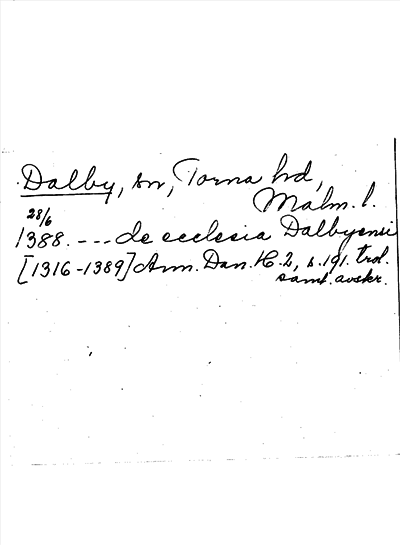 Dalby, sn, Torna hd,
Malm. l.
28/6
1388. --- de ecclesia Dalbyensi
[1316-1389] Ann. Dan. H. 2, s. 191. trol.
saml. avskr.